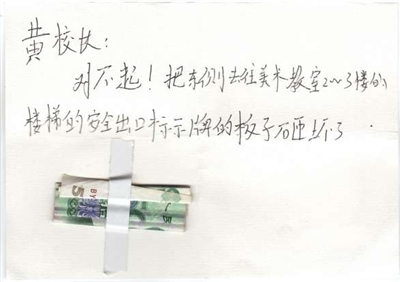 黄校长：
对不起！把东侧去往美术教室2~3楼的
楼梯的安全出口标示牌的板子砸坏了.